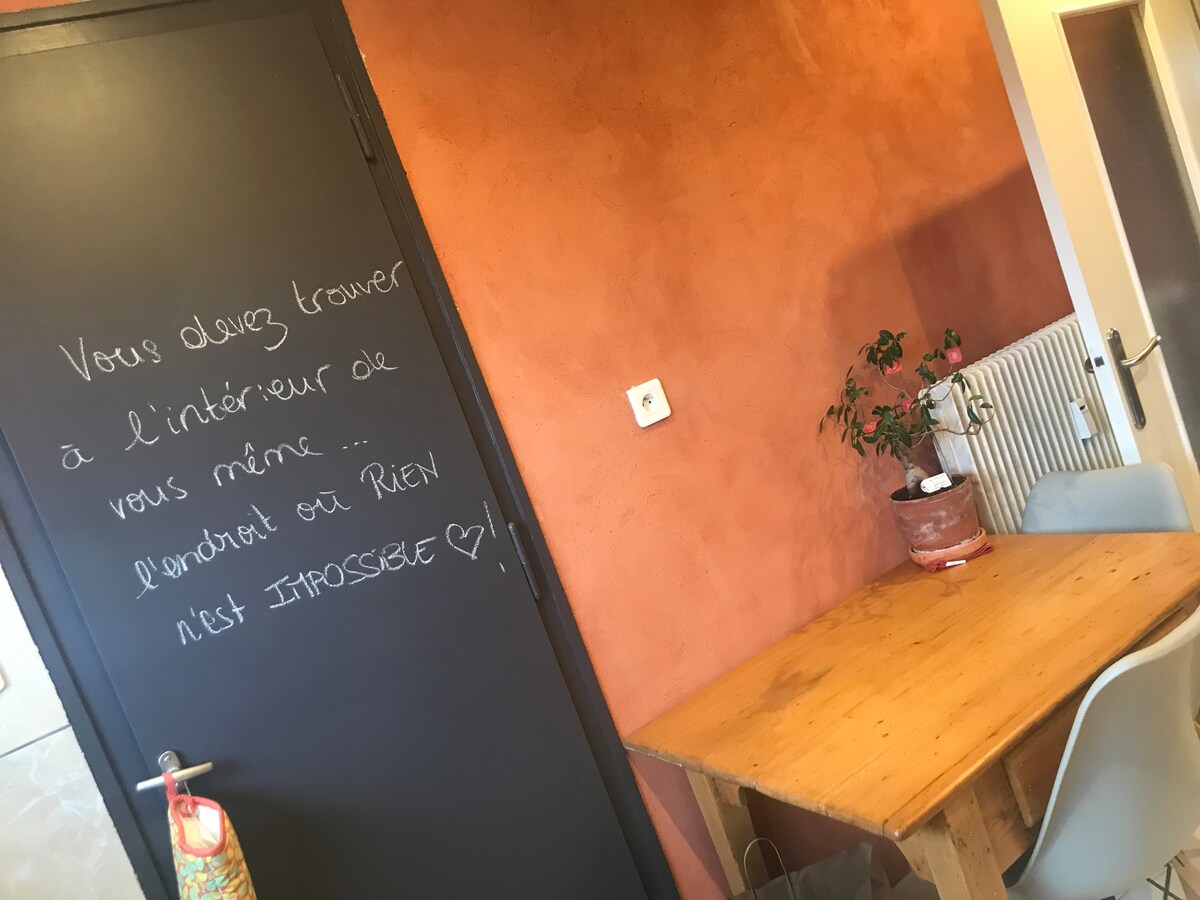 Vous devez trouver
à l'intérieur de
vous même ...
l'endroit où RIEN
n'est IMPOSSIBLE ♡!